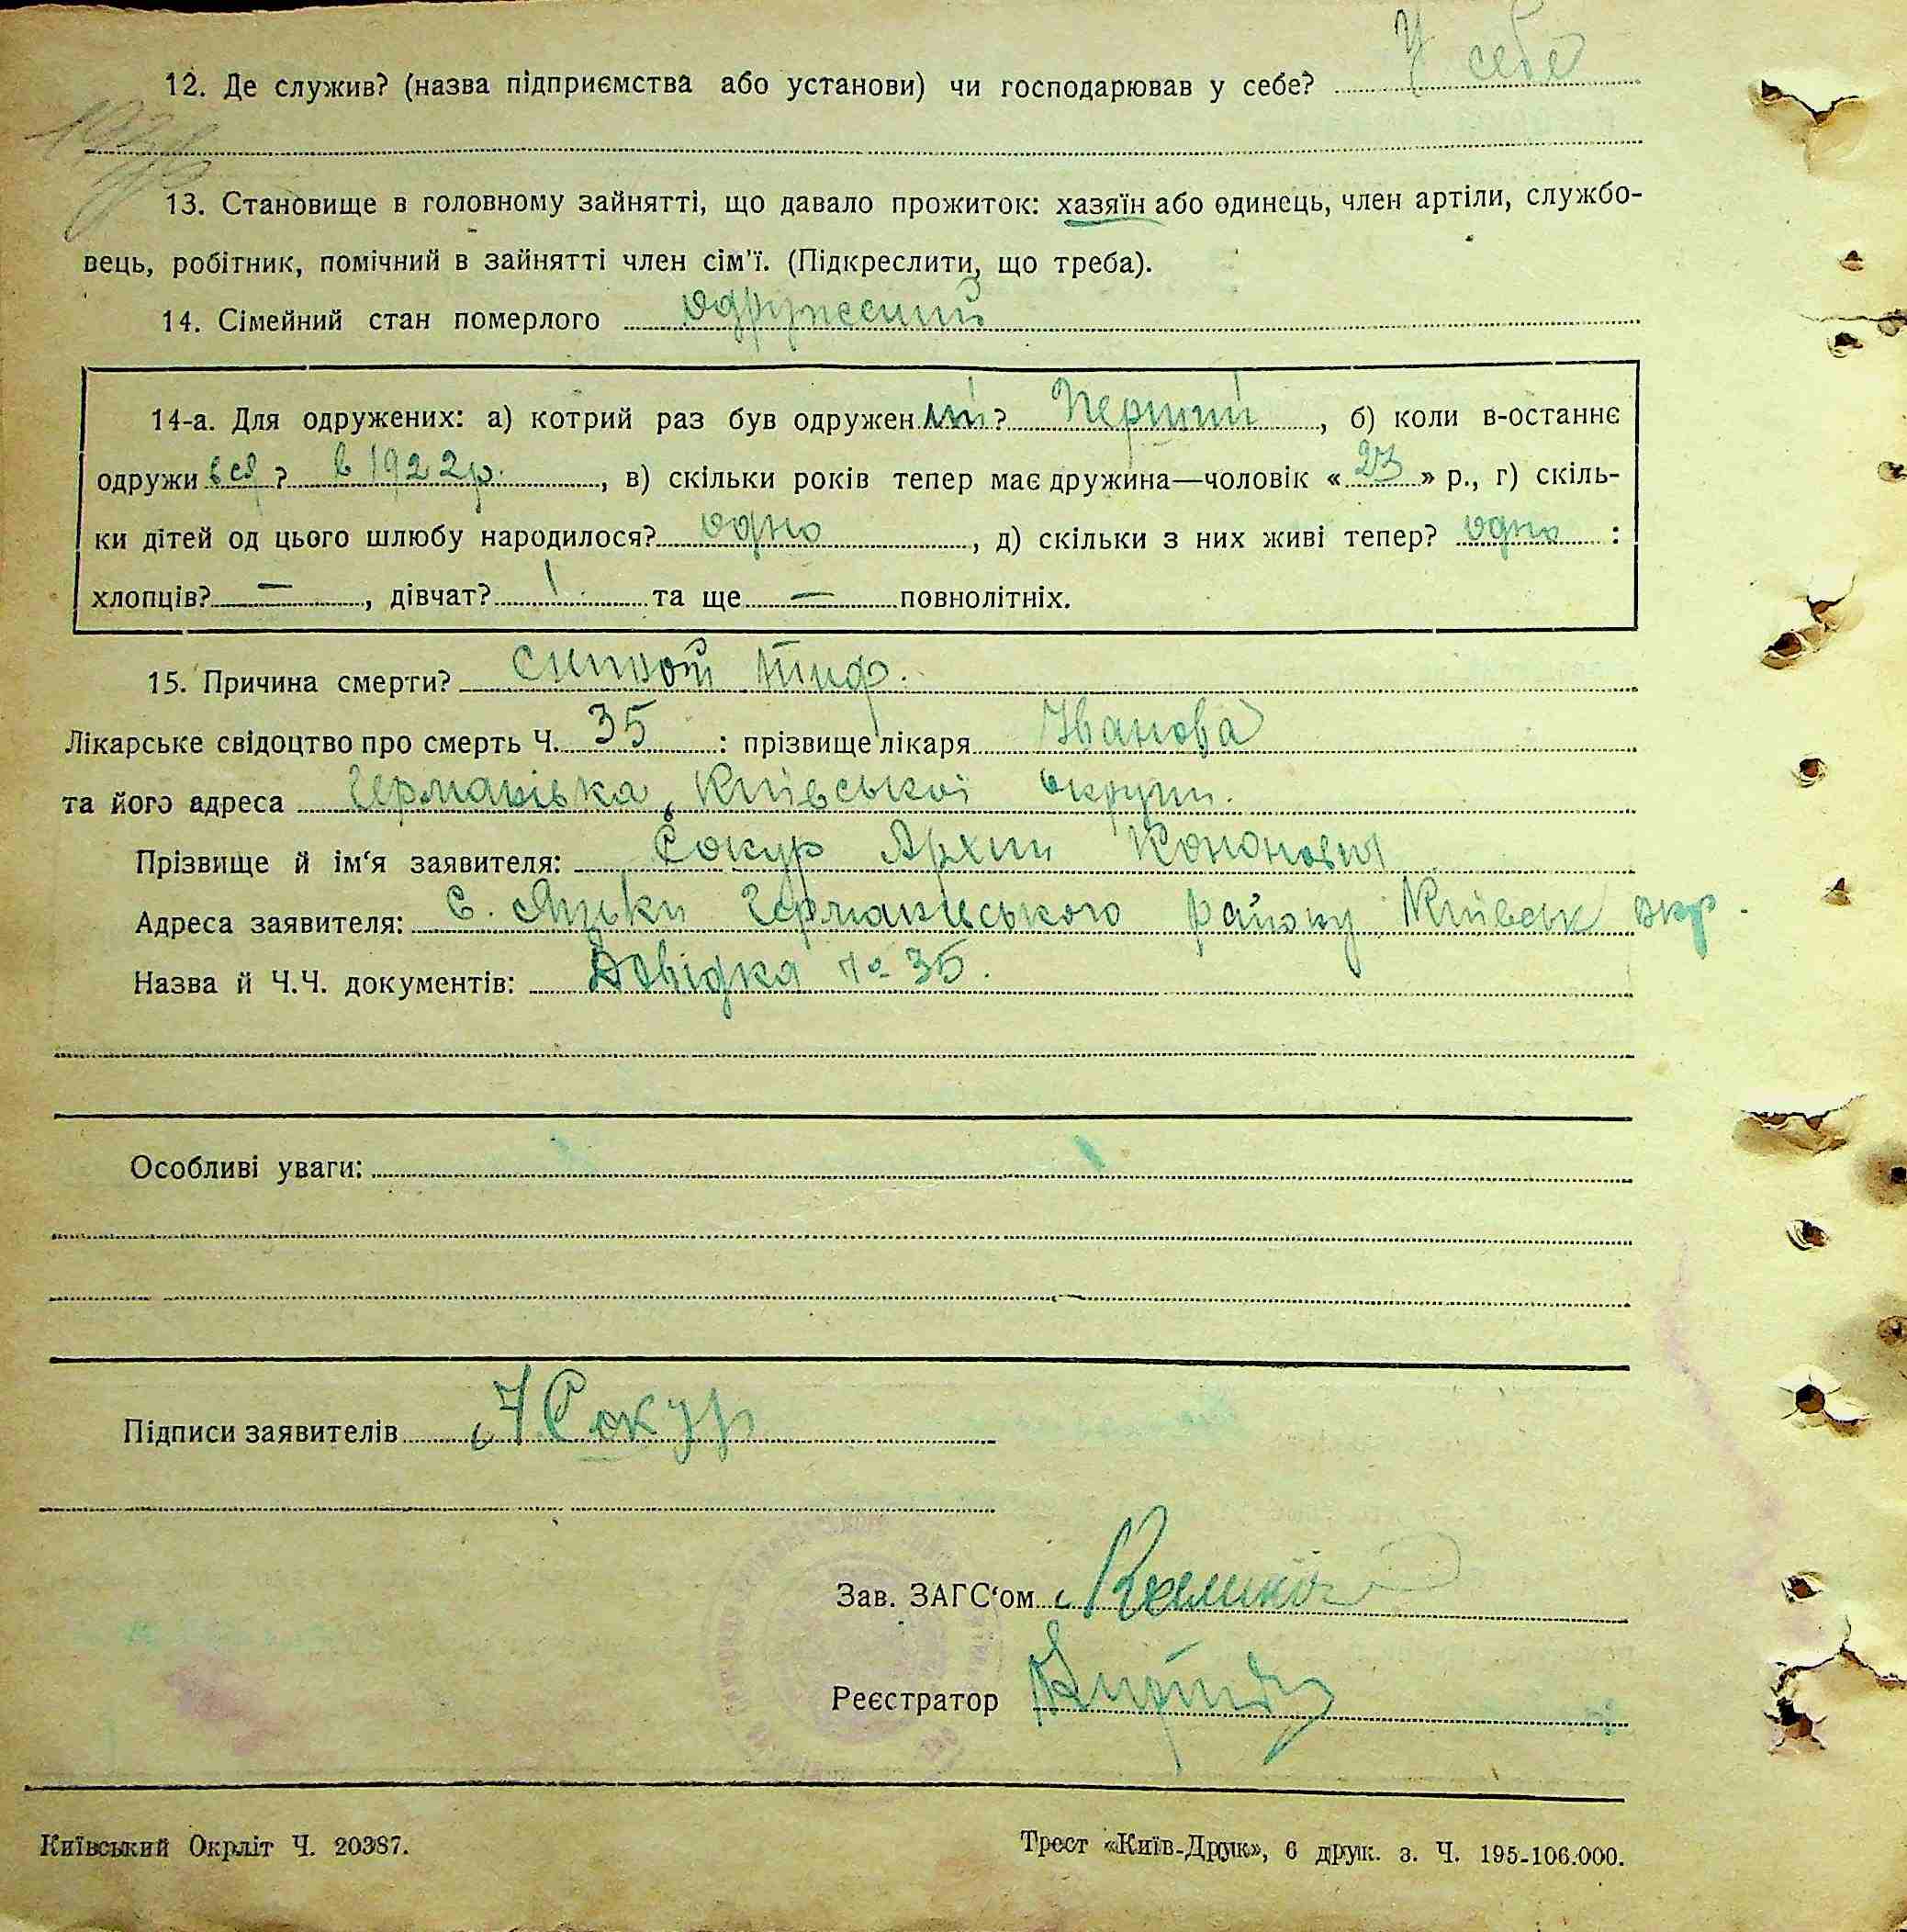 12. Де служив? (назва підприємства або установи) чи господарював у себе? У себе
13. Становище в головному зайнятті, що давало прожиток: хазяїн або одинець, член артіли, службо-
вець, робітник, помічний в зайнятті член сім'ї. (Підкреслити, що треба).
14. Сімейний стан померлого одружений
14-а. Для одружених: а) котрий раз був одружений? Перший, б) коли в-останнє
одружився? в 1922 р., в) скільки років тепер має дружина—чоловік «23» р., г) скіль-
ки дітей од цього шлюбу народилося? одно, д) скільки з них живі тепер? одно :
хлопців? —, дівчат? 1 та ще — повнолітніх.
15. Причина смерти? сипной тиф.
Лікарське свідоцтво про смерть Ч. 35 : прізвище лікаря Іванова
та його адреса Германівка, Київської округи.
Прізвище й ім'я заявителя: Сокур Архип Кононович
Адреса заявителя: С. Германівського району Київськ окр.
Назва й Ч.Ч. документів: Довідка № 35.
Особливі уваги:
Підписи заявителів Сокур
Зав. ЗАГС'ом
Реєстратор
Київський Окрліт Ч. 20387.
Трест «Київ-Друк», 6 друк. з. Ч. 195-106.000.